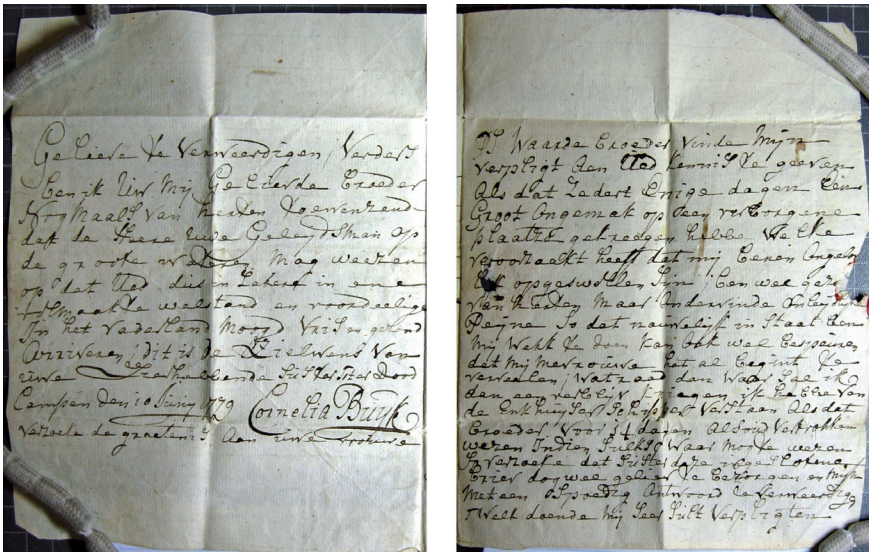 Gelieve te Verweerdigen, Verders
ben ik Uw Mij Geliefde Broeder
Nogmaals van herten toewenzend
dat de Heere Uwe Geleidsman op
de groote wateren Mag weezen
op dat UEd dus in Zekere in ene
welstand en voordeelig
In het Vaderland Moogd Vris en gezond
Arriveren, dit is de Zielwens Van
uwe Liefhebbende Suster ter Dood
Campen den 10 Juny 1779 Cornelia Buijk
Verzoeke de groetenis Aan uwe vrouwe
PS Waarde Broeder Vinde Mijn
verpligt Aan UEd kennis te geeven
Als dat Zedert Enige dagen Een
Groot Ongemak op Een verborgene
plaatze gekreegen hebbe Welke
veroorzaakt heeft dat mij Beenen
opgeswollen Sijn, Ben wel
van herten Maar Ondervinde
Peijne So dat nauwelijk in Staat Ben
Mij Werk te doen kan Ook wel Bespeuren
dat Mij Mevrouwe het al Begint te
verveelen, Wat raad dan Waar Sal ik
dan een verblijf krijgen
de Enkhuijser Schippers Verstaan Als dat
Broeder Voor 14 dagen Al Sou Vertrokken
wezen Indien Sulks Waar Mogte wezen
So verzoeke dat Suster deze
Brief dog wel gelieft te Bezorgen en Mijn
Met een Spoedig Antwoord te verweerdig
Welk doende Mij Seer Sult Verpligten